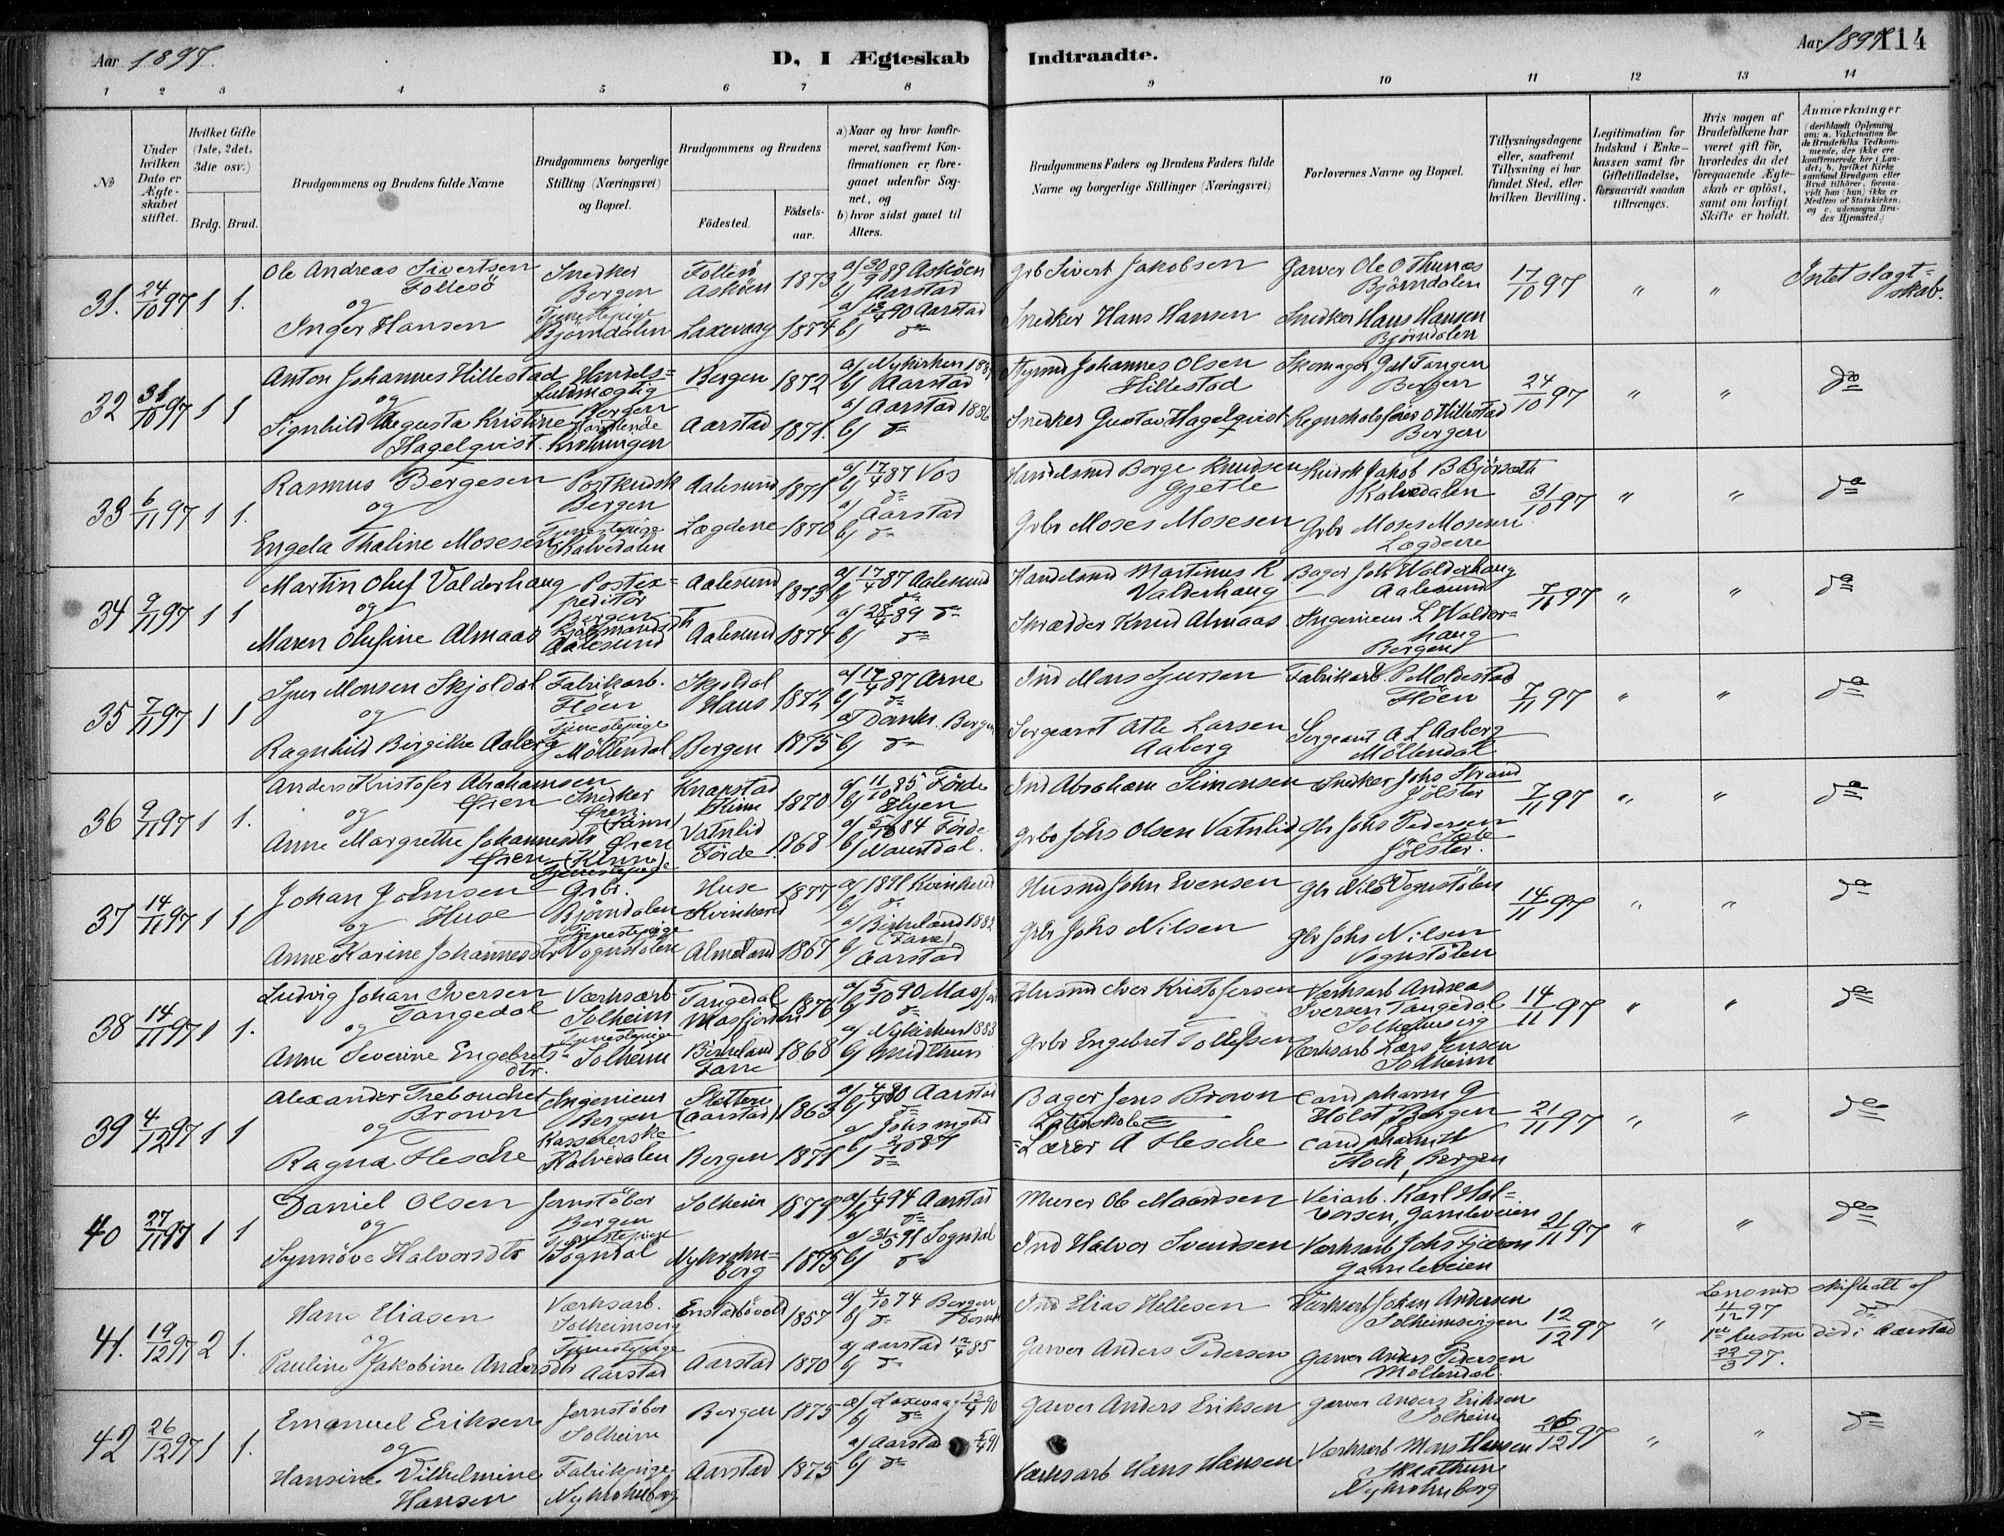 Aar 1897. D, I Ægteskab Indtraadte. Aar 1897 114
1 2 3 4 5 6 7 8 9 10 11 12 13 14
№
Under hvilken Dato er Ægteskabet stiftet.
Hvilket Gifte (1ste, 2det, 3die osv.)
Brdg. Brud.
Brudgommens og Brudens fulde Navne
Brudgommens borgerlige Stilling (Næringsvei) og Bopæl.
Brudgommens og Brudens
Födested.
Födselsaar.
a) Naar og hvor konfirmeret, saafremt Konfirmationen er foregaaet udenfor Sognet, og
b) hvor sidst gaaet til Alters.
Brudgommens Faders og Brudens Faders fulde Navne og borgerlige Stillinger (Næringsvei)
Forlovernes Navne og Bopæl.
Tillysningsdagene eller, saafremt Tillysning ei har fundet Sted, efter hvilken Bevilling.
Legitimation for Indskud i Enkekassen samt for Giftetilladelse, forsaavidt saadan tiltrænges.
Hvis nogen af Brudefolkene har været gift för, hvorledes da det foregaaende Ægteskab er oplöst, samt om lovligt Skifte er holdt.
Anmærkninger
31. 24/10 97 1 1.
Ole Andreas Sivertsen Follesö
og
Inger Hansen
Snedker Bergen
Tjenestepige Björndalen
Follesö Askøen 1873
Laxevaag 1874
a) 30/9 89 Askøen
b) Aarstad
a) 13/4 90 Aarstad
b) do
Grb Sivert Jakobsen
Snedker Hans Hansen
Garver Ole O Thunæs Björndalen
Snedker Hans Hansen Björndalen
17/10 97 " "
Intet slægtskab.
32 31/10 97 1 1
Anton Johannes Hillestad
og
Signhild Augusta Kristine Hagelqvist.
Handelsfuldmægtig Bergen
Bergen 1872
Aarstad 1871.
a) Nykirken
b) Aarstad
a) Aarstad 1886
b) do
Styrmd Johannes Olsen Hillestad
Snedker Gustav Hagelqvist
Skomager Bergen
Regnskabsförer O Hillestad Bergen
24/10 97 " " do
33 6/11 97 1 1.
Rasmus Bergesen
og
Engela Thaline Mosesen
Postkudsk Bergen
Tjenestepige Kalvedalen
Aalesund 1871
Lægdene 1870
a) 17/4 87 Vos
b) do
a) Aarstad
b) do
Handelsmd Berge Knudsen Gjetle
Grbr Moses Mosesen
Kudsk Jakob B Björsæth Kalvedalen
Grbr Moses Mosesen Lægdene
31/10 97 " " do
34 9/11 97 1 1
Martin Oluf Valderhaug
og
Maren Olufine Almaas
Postexpeditör Bergen
Aalesund
Aalesund 1873
Aalesund 1874
a) 17/4 87 Aalesund
b) do
a) 28/4 89 do
b) do
Handelsmd Martinus R Valderhaug
Skrædder Knud Almaas
Bager Joh Walderhaug Aalesund
Ingeniör L Walderhaug Bergen
7/11 97 " " do
35 7/11 97 1 1
Sjur Monsen Skjoldal
og
Ragnhild Bergithe Aaberg
Fabrikarb. Flöen
Tjenestepige Möllendal
Skjoldal Haus 1872
Bergen 1875
a) 17/4 87 Arne
b) do
a) Domk. Bergen
b) do
Ind Mons Sjursen
Sergeant Atle Larsen Aaberg
Fabrikarb P Moldestad Flöen
Sergeant A L Aaberg Möllendal
7/11 97 " " do
36 9/11 97 1 1.
Anders Kristofer Abrahamsen
og
Anne Margrethe Johannesdtr
Snedker
Tjenestepige
Knapstad 1870
Vatnlid Förde 1868
a) 11/10 85 Förde
b)
a) 5/10 84 Förde
b) Naustdal.
Ind Abraham Simonsen
Grbr Johs Olsen Vatnlid
Snedker Johs Strand Jölster
Gbr Johs Pedersen Jölster.
7/11 97 " " do
37 14/11 97 1 1
Johan Johnsen Huse
og
Anne Karine Johannesdtr
Grbr. Björndalen
Tjenestepige Vognstölen
Huse Kvinherred 1877
Almeland 1867
a) 1891 Kvinherred
b) do
a) Birkeland 1882 (Fane)
b) Aarstad
Husmd John Evensen
Grbr Johs Nilsen
Gbr Nils Vognstölen
Gbr Johs Nilsen Vognstölen
14/11 97 " " do
38 14/11 97 1 1.
Ludvig Johan Iversen Tangedal
og
Anne Severine Engebretsdtr.
Værksarb Solheim
Tjenestepige Solheim
Tangedal Masfjorden 1876
Birkeland Fane 1868
a) 5/10 90 Masfjo
b) do
a) Nykirken 1883
b) Midthun
Husmd Iver Kristofersen
Grbr Engebret Tollefsen
Værksarb Andreas Iversen Tangedal Solheimsvig
Værksarb Lars Jensen Solheim
14/11 97 " " do
39 4/12 97 1 1
Alexander Trebouchet Brown
og
Ragna Flesche
Ingeniör Bergen
Kassererske Kalvedalen
Sletten (Aarstad) 1863
Bergen 1871
a) 4/4 80 Aarstad
b) do
a) Johs mgtd 2/10 87
b) do
Bager Jens Brown
Latinskole-Lærer A Flesche
Cand pharm G Holst Bergen
Cand pharm H Flock, Bergen
21/11 97 " " do
40 27/11 97 1 1
Daniel Olsen
og
Synnöve Halvorsdtr
Jernstöber Bergen
Tjenestepige Sogndal
Solheim 1872
Nykrohnborg 1875
a) 1/4 94 Aarstad
b) do
a) 31/5 91 Sogndal
b) do
Murer Ole Maardsen
Ind Halvor Svendsen
Veiarb. Karl Halvorsen, Gamleveien
Værksarb Johs Gamleveien
21/11 97 " " do
41. 19/12 97 2 1.
Hans Eliasen
og
Pauline Jakobine Andersdtr
Værksarb. Solheimsvig
Tjenestepige Aarstad
1857
Aarstad 1870
a) 4/10 74 Bergen
b) do
a) Aarstad 12/4 85
b) do
Ind Elias Hellesen
Garver Anders Pedersen
Værksarb Johan Andersen Solheimsvigen
Garver Anders Pedersen Möllendal.
12/12 97 "
Lensmds skifteatt af 4/12 97
1ste hustru död i Aarstad 22/3 97.
do
42 26/12 97 1 1.
Emanuel Eriksen
og
Hansine Vilhelmine Hansen
Jernstöber Solheim
Fabrikpige Nykrohnborg
Bergen 1875
Aarstad 1875
a) Laxevaag 13/4 90
b) do
a) Aarstad 5/4 91
b) do
Garver Anders Eriksen
Værksarb Hans Hansen
Garver Anders Eriksen Solheim
Værksarb Mons Hansen Skaathun Nykrohnborg
26/12 97 " " do